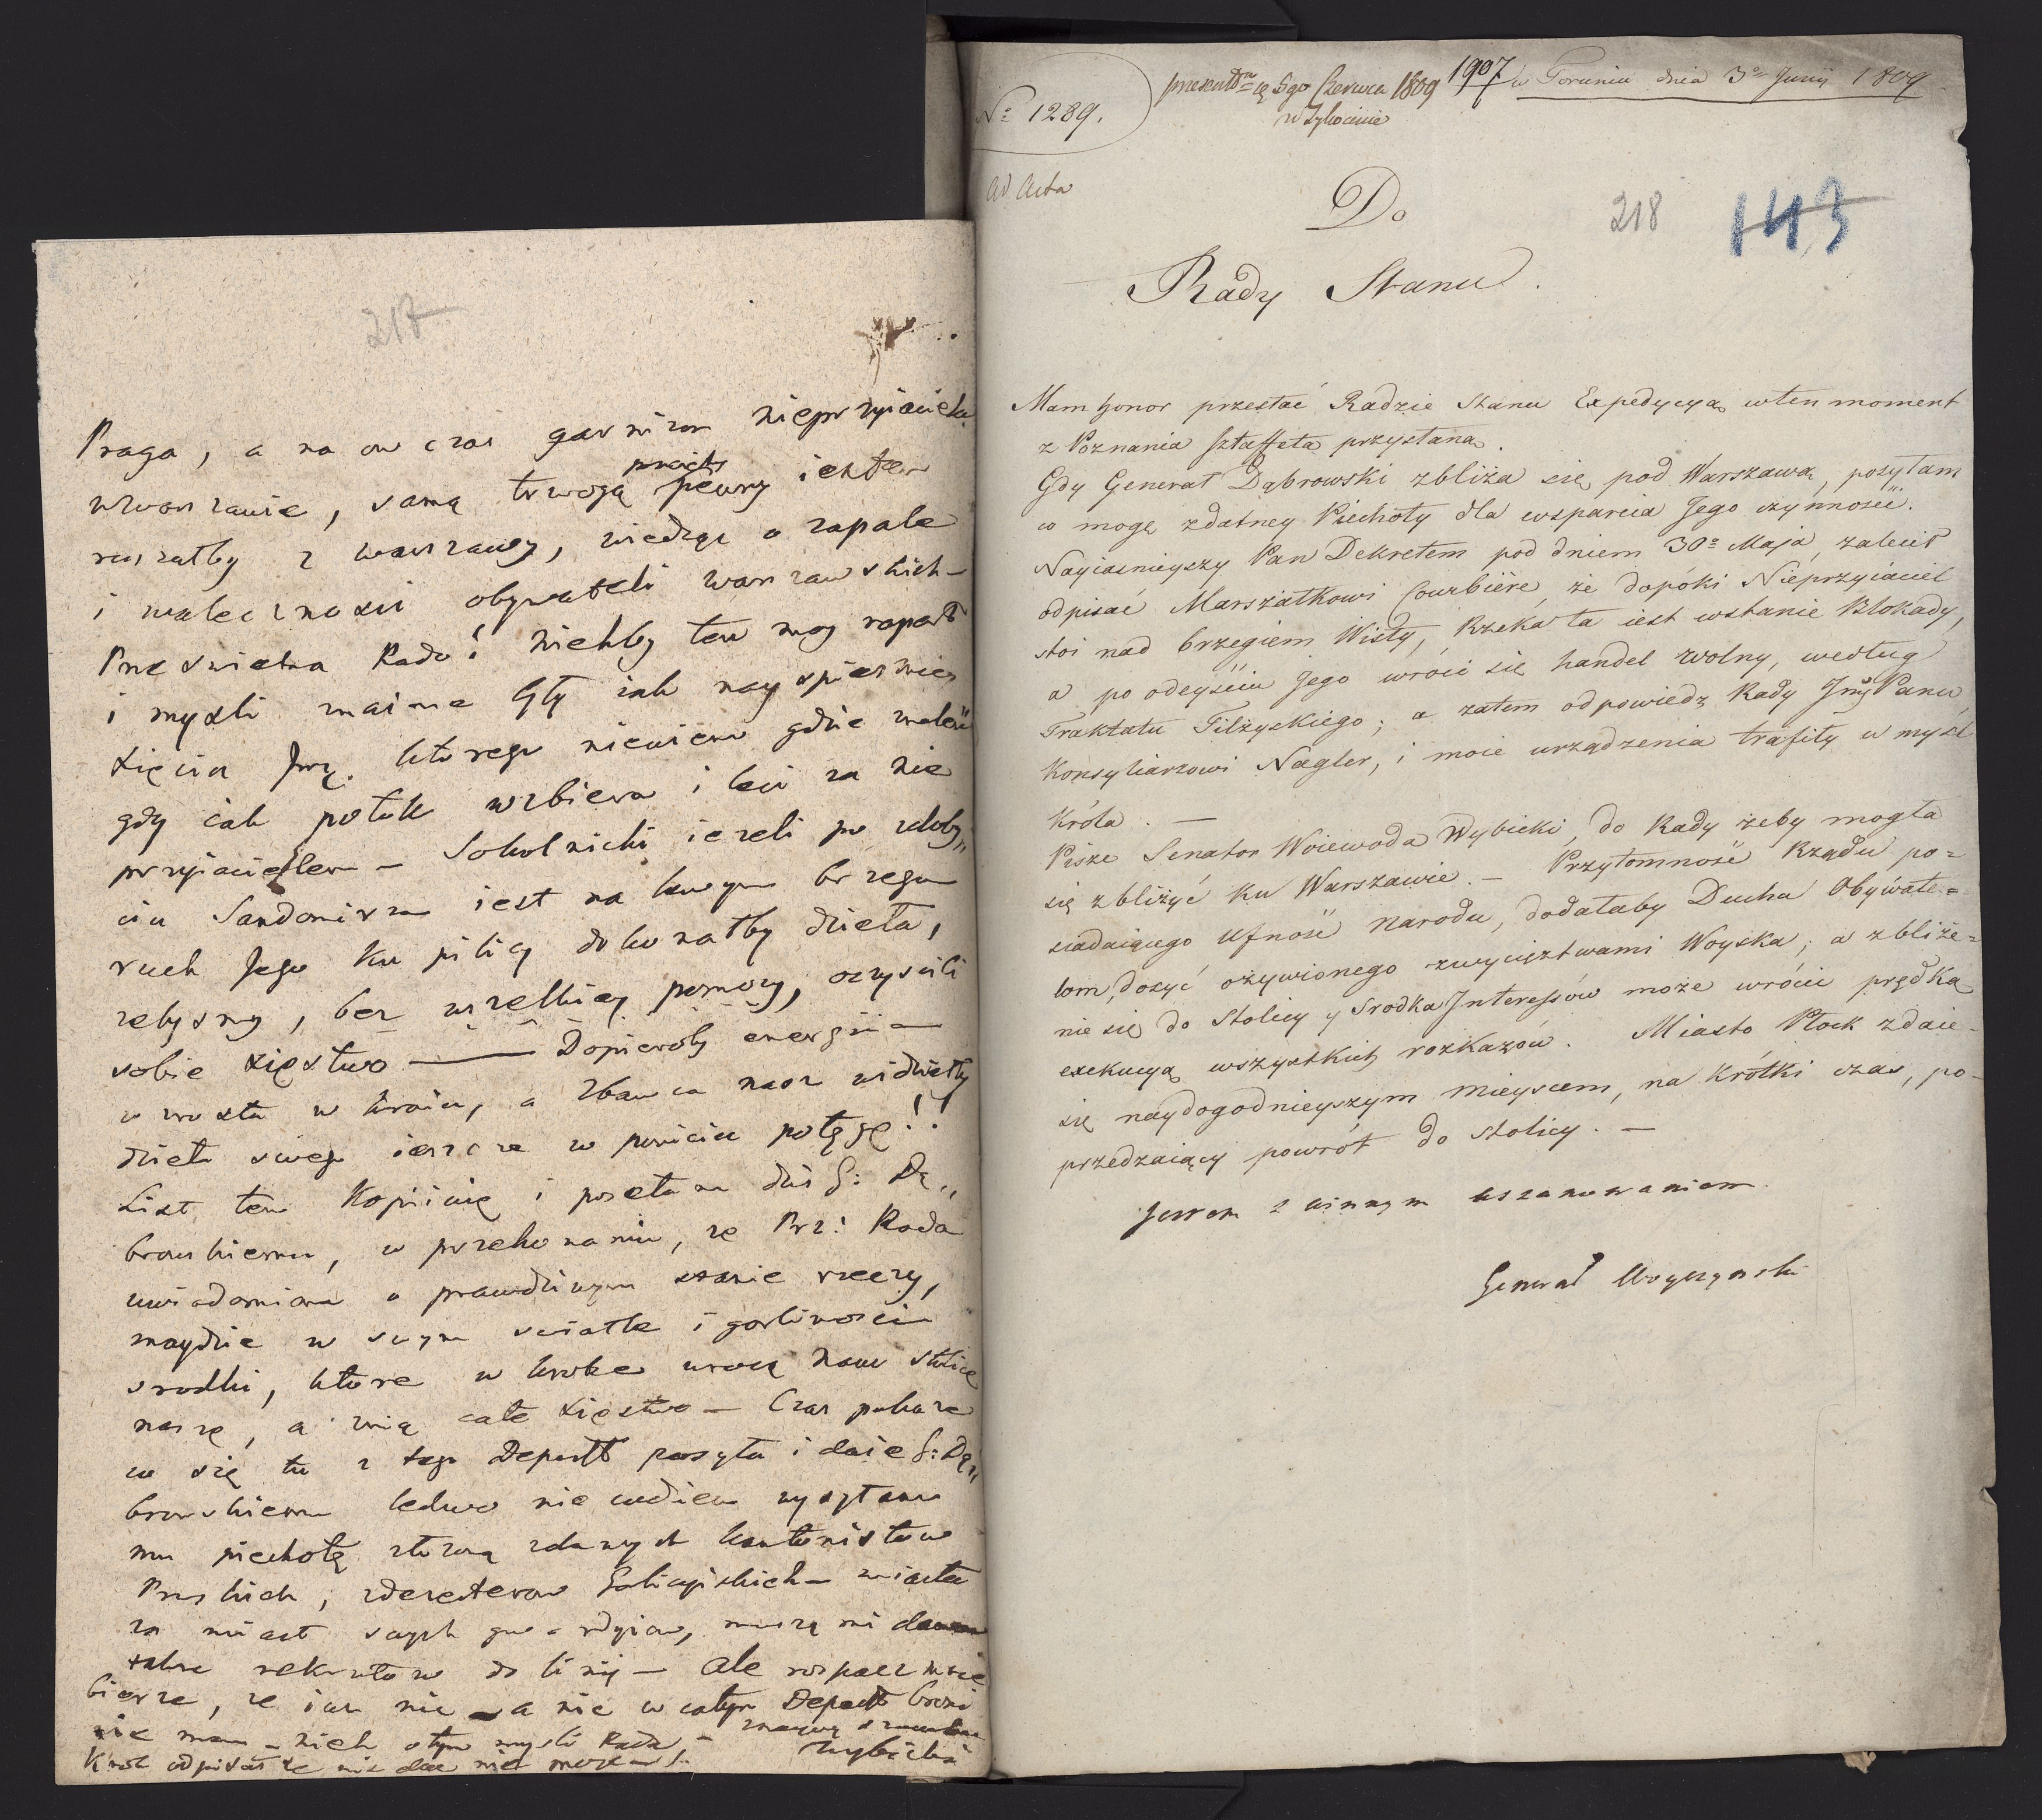 217
Praga, a na on czas garnizon nieprzyiaciela
w Warszawie, samą trwogą pewny iestem
prędko
ruszałby z Warszawy, wiedząc o zapale
i walecznosci obywateli Warszawskich –
Prześwietna Rado! niehby ten moy raport
i mysli maiące iak nayspieszniey
Xięcia Jmę. ktorego niewiem gdzie znaleść
gdy iak potok wzbiera i leci za nie
przyiacielem – Sokolnicki iezeli po zdoby„
ciu Sandomirza iest na lewym brzegu
ruch Jego ku pilicy dokonałby dzieła,
zebysmy, bez wszelkiey pomocy, oczyscili
sobie Xięstwo — Dopieroby energiia
wzrosła w kraiu, a Zbawca nasz widziałby
dzieła swego ieszcze w powiciu potęgę!!
List ten kopiuię i posełam dziś G: Dą„
browskiemu, w przekonaniu, że Prz: Rada
uwiadomiona o prawdziwym stanie rzeczy,
znaydzie w swym swiatle i gorliwosci
srodki, ktore w krotce wrocą nam stolicę
naszę, a z nią całe Xięstwo – Czas pokaże
co się tu z tego Depart posyła i daie G: Dą„
browskiemu ledwo nie cudiem wysyłam
mu piechotę złozoną zdanych kantonistow
Pruskich, zdezerterow Galicyiskich – miasta
za miast swych gwardyiow, muszą mi
rekrutow do linij – Ale rospacz mnie
bierze, że iuż nic a nic w całym Depart broni
nie mam – niech o tym mysli Rada –
Krol odpisał że nie dac nie moze
Wybicki
No 1289.
presentn 5go Czerwca 1809
w Tykocinie
1907
w Toruniu dnia 3o Junij 1809
Ad Acta
218
143
Do
Rady Stanu.
Mam honor przesłać Radzie Stanu Expedycyą wten moment
z Poznania sztaffetą przysłaną.
Gdy Generał Dąbrowski zbliża się pod Warszawę, posyłam
co mogę zdatney Piechoty dla wsparcia Jego czynności.
Nayiasnieyszy Pan Dekretem pod dniem 30o Maja, zalecił
odpisać Marszałkowi Courbiére, że dopóki Nieprzyiaciel
stoi nad brzegiem Wisły, Rzeka ta iest wstanie Blokady,
a po odeyściu Jego wróci się handel wolny, według
Traktatu Tilżyckiego; a zatem odpowiedz Rady Panu
Konsyliarzowi Nagler, i moie urządzenia trafiły w myśl
Króla. —
Pisze Senator Woiewoda Wybicki, do Rady żeby mogła
się zbliżyć ku Warszawie. – Przytomność Rządu po=
siadaiącego ufność Narodu, dodałaby Ducha Obywate=
lom, dosyć ożywionego zwycięztwami Woyska; a zbliże=
nie się do Stolicy y Srodka Interessów może wrócić prędką
exekucyą wszystkich rozkazów. Miasto Płock zdaie
się naydogodnieyszym mieyscem, na krótki czas, po-
przedzaiący powrót do Stolicy. —
Jestem z winnym uszanowaniem.
Generał Woyczynski